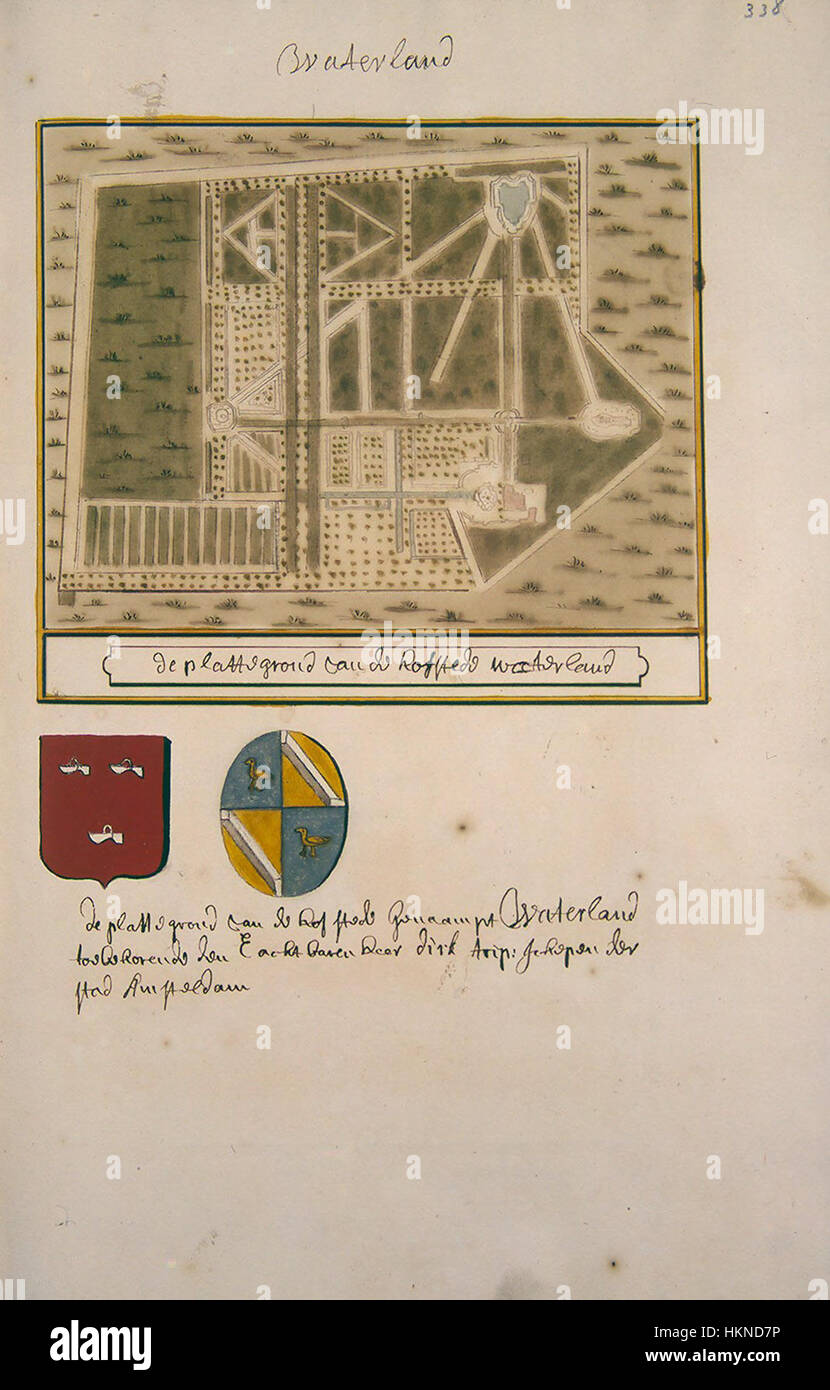 338
Waterland
de plattegrond van de hofstede waterland
de plattegrond van de hof stede genaampt Waterland
toebehorende den E acktbaren heer dirk trip: schepen der
stad Amsteldam
alamy
Image ID: HKND7P
www.alamy.com